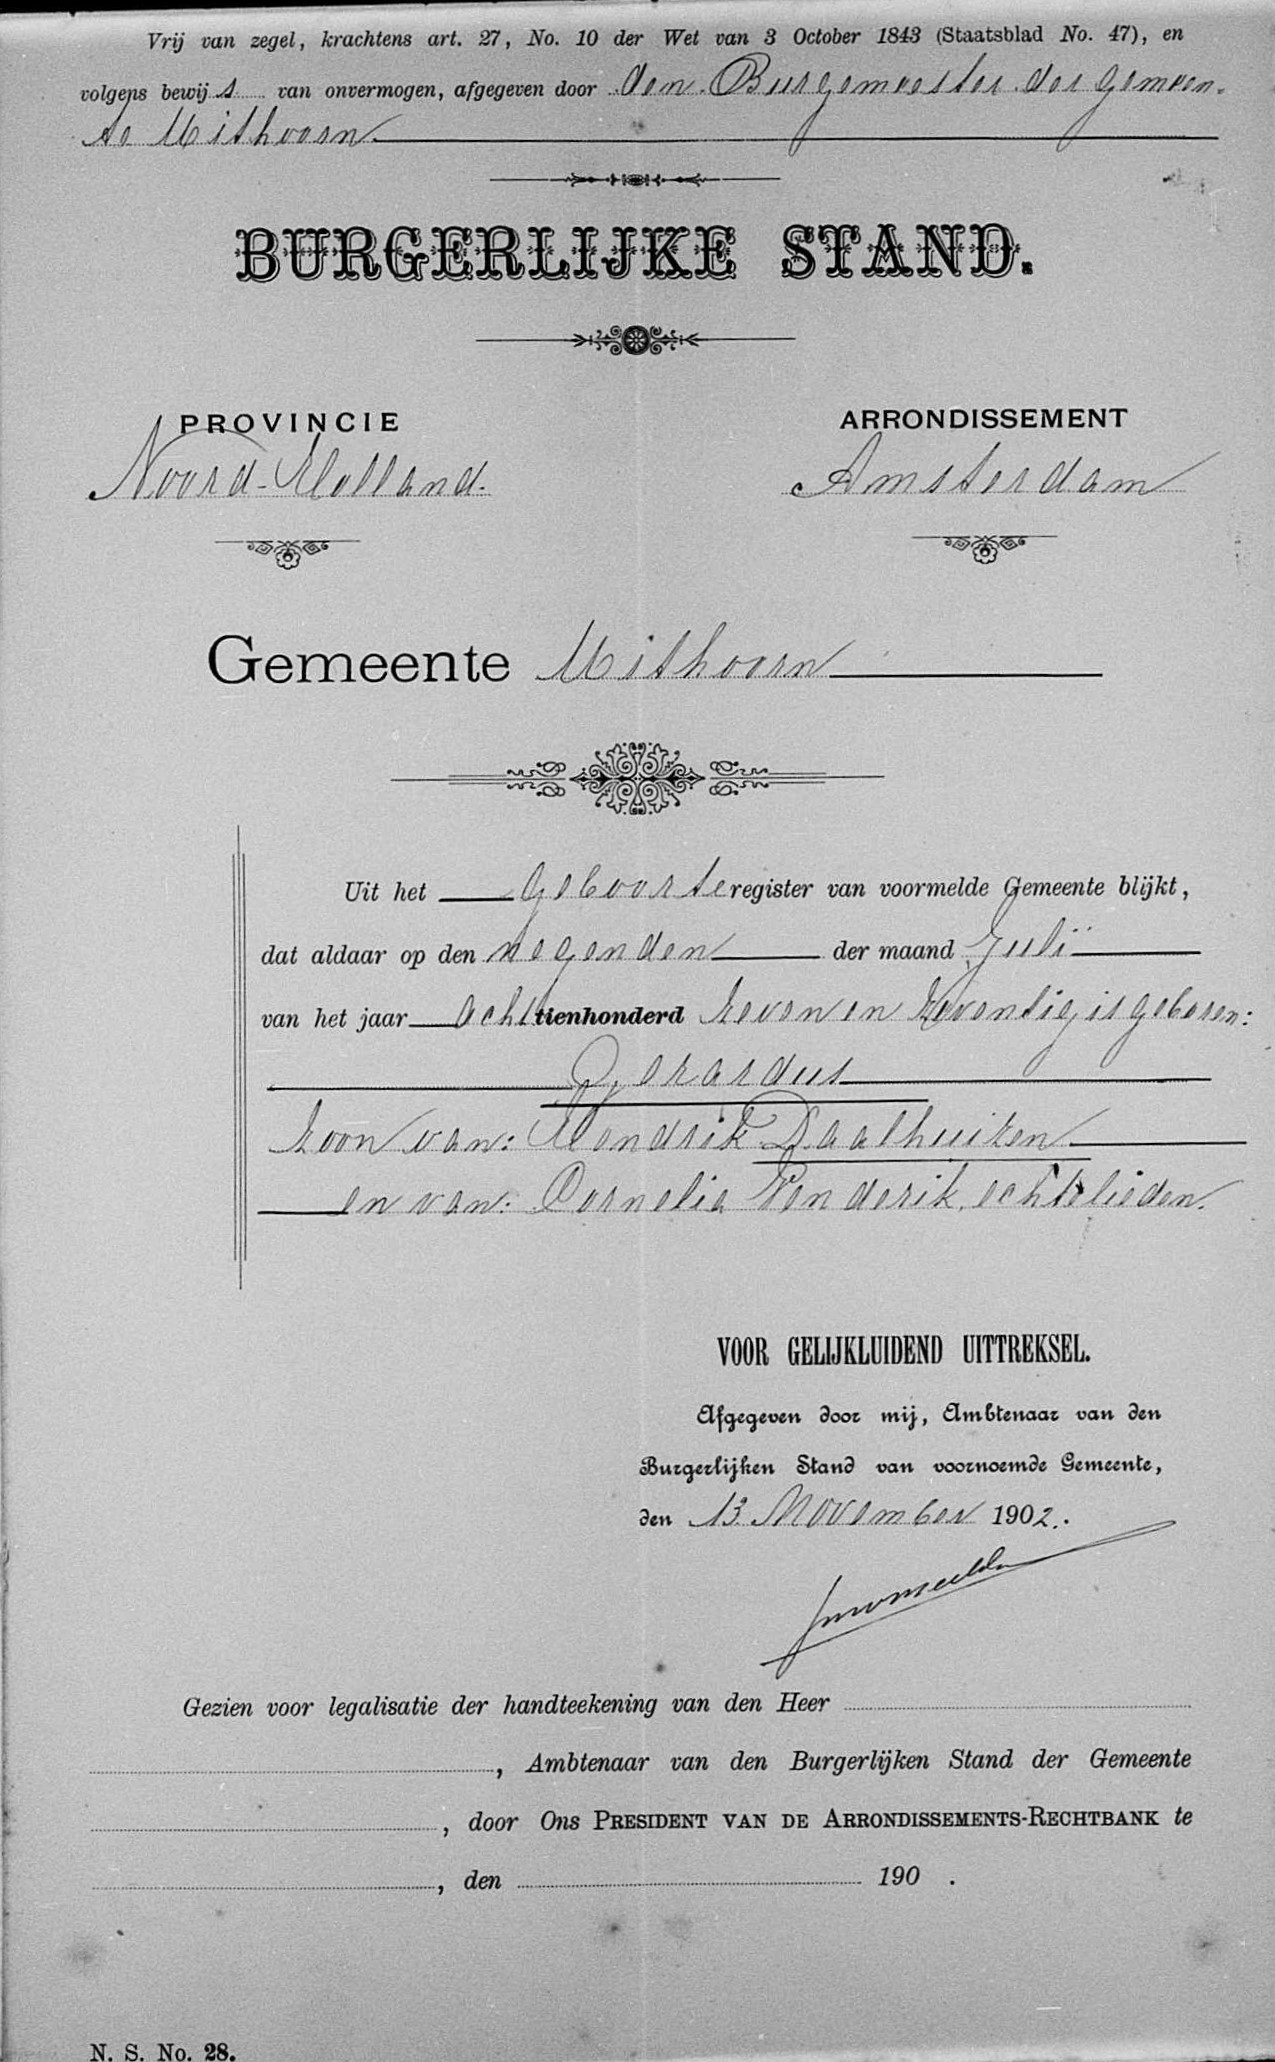 Vrij van zegel, krachtens art. 27, No. 10 der Wet van 3 October 1843 (Staatsblad No. 47), en
volgens bewijs van onvermogen, afgegeven door den Burgemeester der gemeen-
te Uithoorn
BURGERLIJKE STAND.
PROVINCIE ARRONDISSEMENT
Noord-Holland. Amsterdam
Gemeente Uithoorn
Uit het geboorteregister van voormelde Gemeente blijkt,
dat aldaar op den negenden der maand Juli
van het jaar achttienhonderd zeven en zeventig is geboren:
Gerardus
zoon van: Hendrik Daalhuizen
en van: Cornelia Venderik, echtelieden.
VOOR GELIJKLUIDEND UITTREKSEL.
Afgegeven door mij, Ambtenaar van den
Burgerlijken Stand van voornoemde Gemeente,
den 13 November 1902.
Gezien voor legalisatie der handteekening van den Heer
, Ambtenaar van den Burgerlijken Stand der Gemeente
, door Ons PRESIDENT VAN DE ARRONDISSEMENTS-RECHTBANK te
, den 190 .
N. S. No. 28.